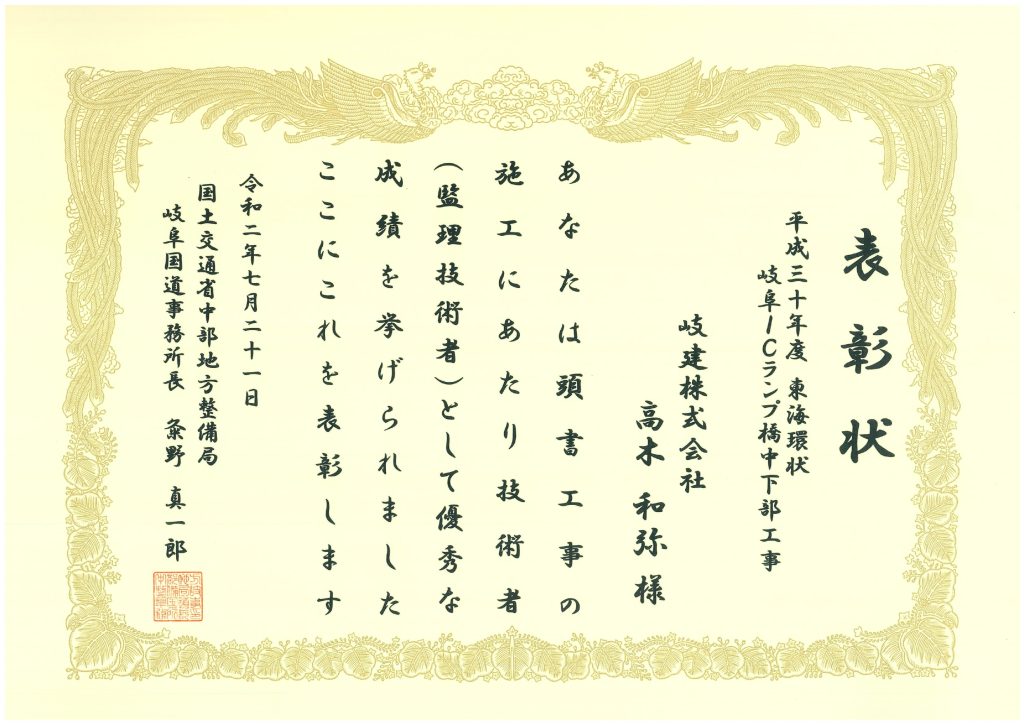 表彰状
平成三十年度 東海環状
岐阜ICランプ橋中下部工事
岐建株式会社
高木 和弥 様
あなたは頭書工事の
施工にあたり技術者
(監理技術者)として優秀な
成績を挙げられました
ここにこれを表彰します
令和二年七月二十一日
国土交通省中部地方整備局
岐阜国道事務所長 粂野 真一郎